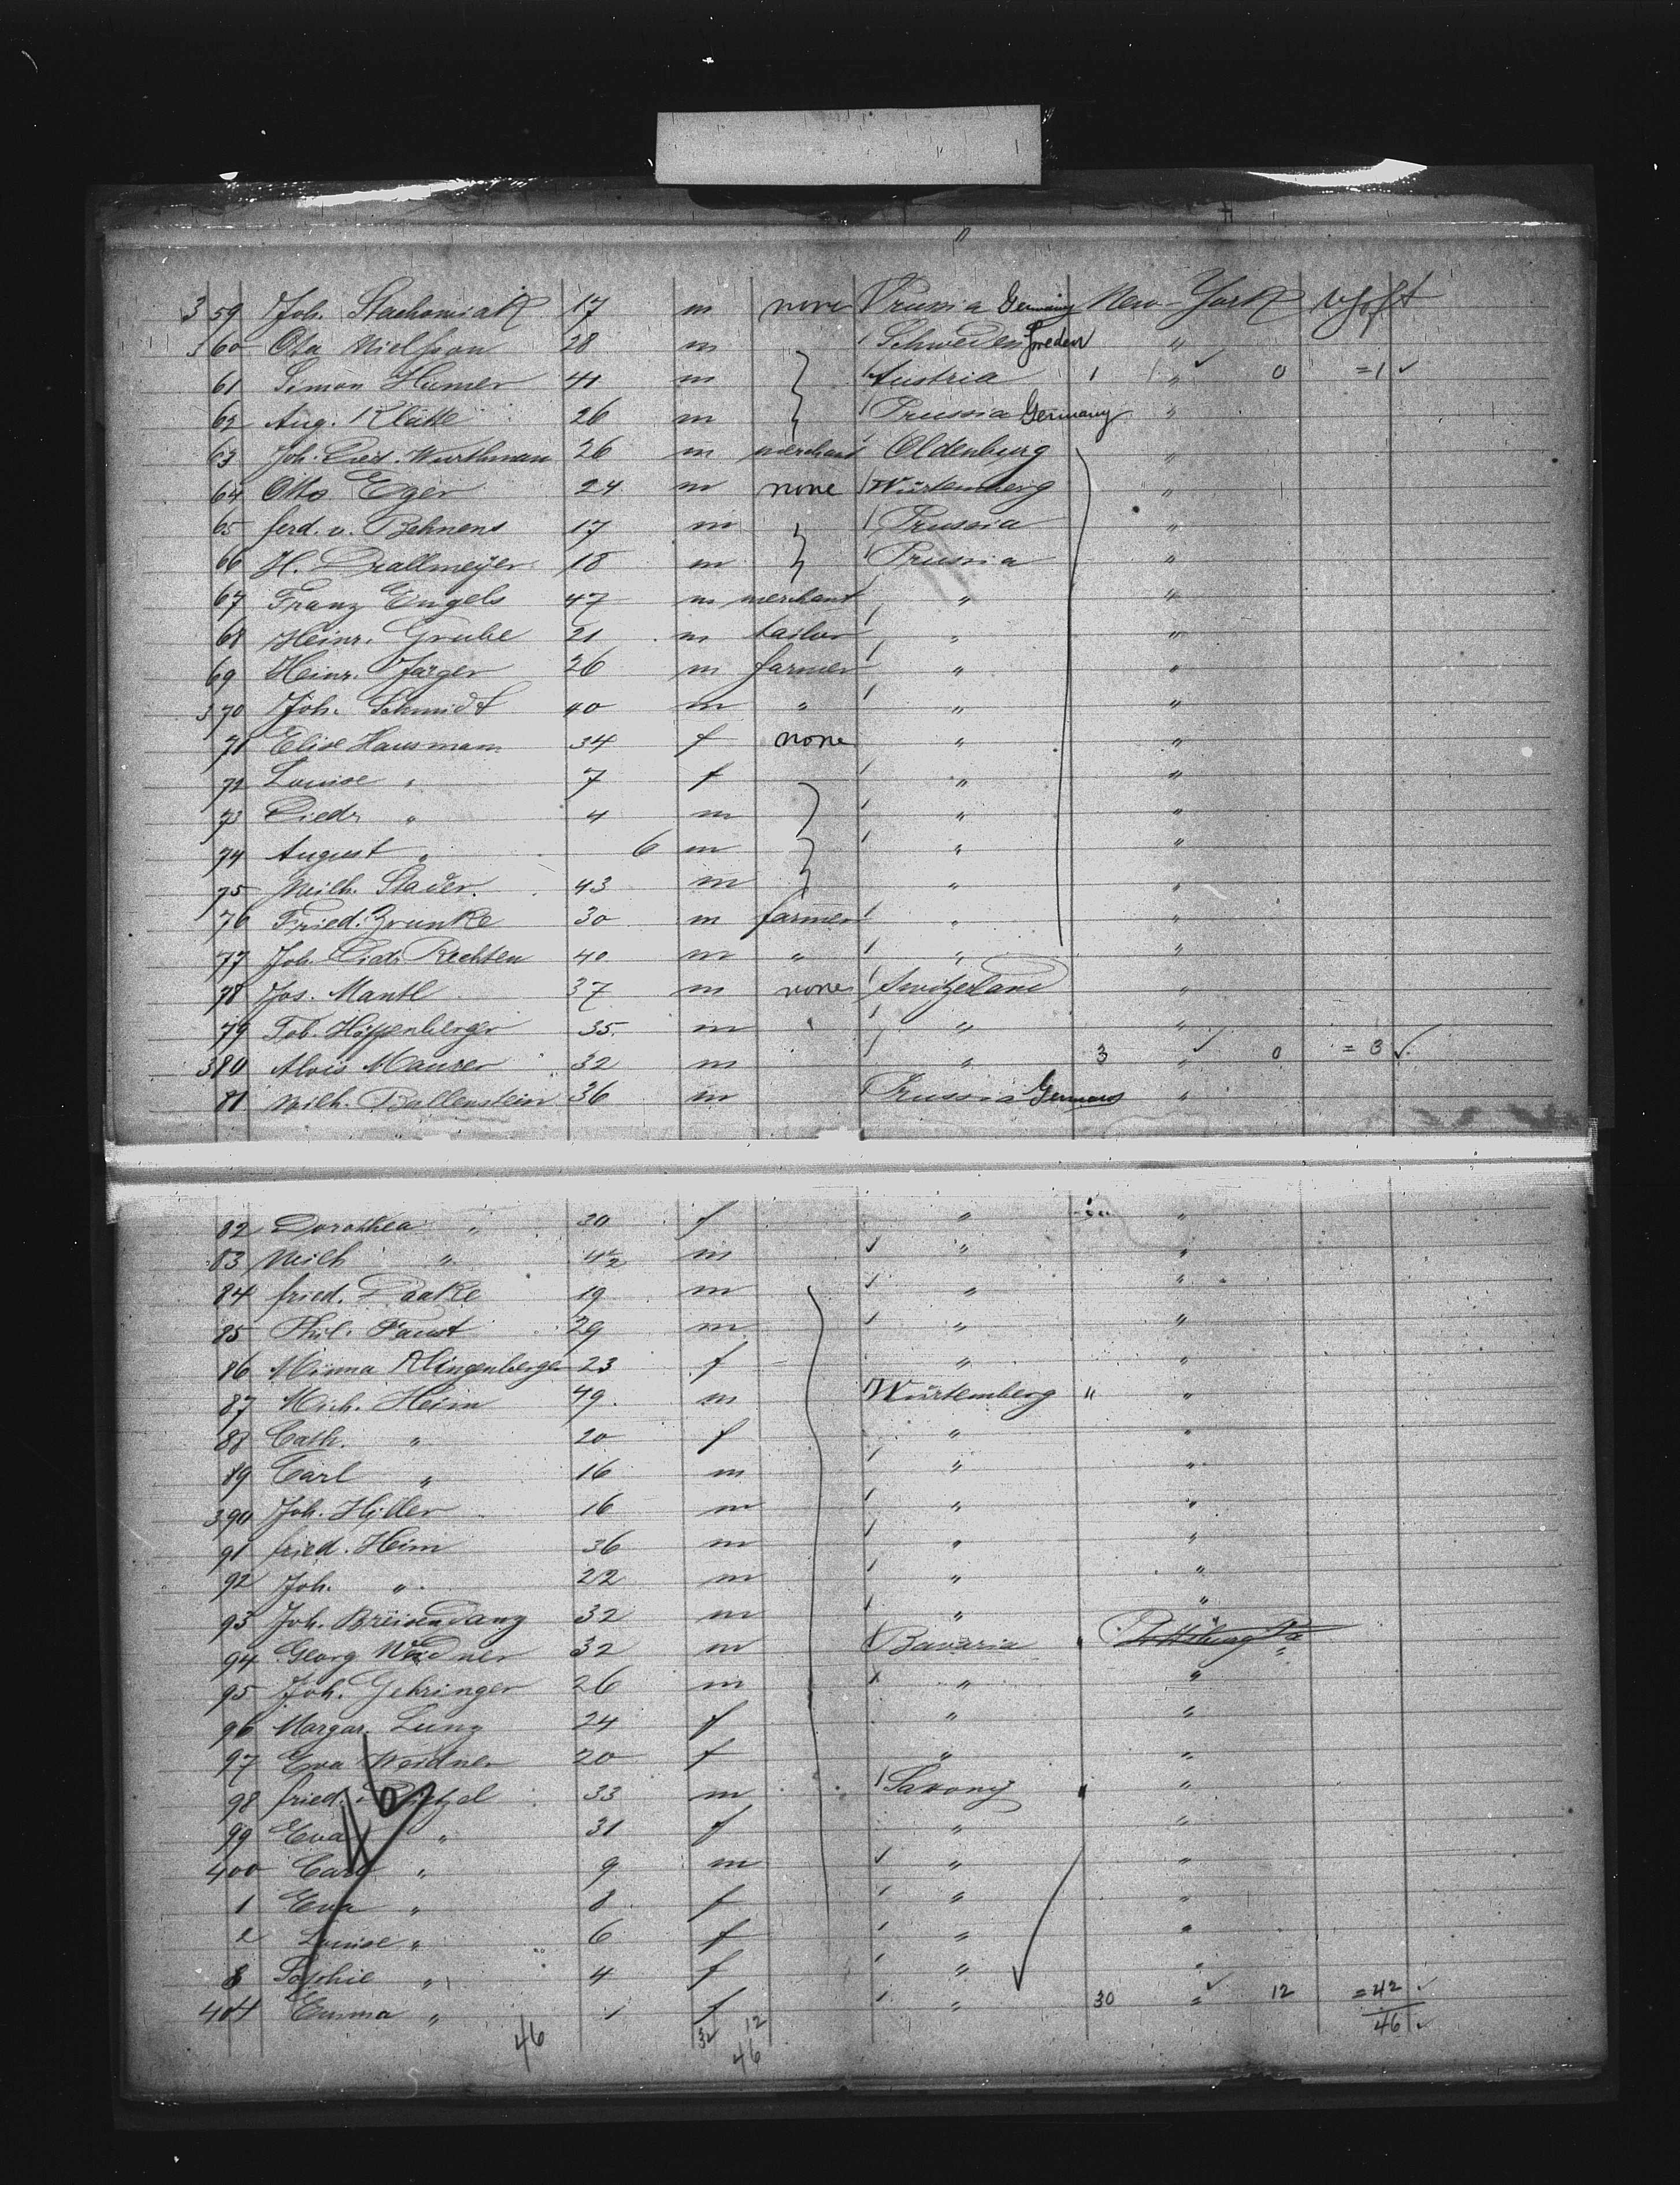 359 Joh. Stachowiak 17 m none Prussia Germany New-York
360 Ola Nielsson 28 m Schweden Sweden "
61 Simon Humer 41 m Austria 1 " 0 =1
62 Aug. Klatte 26 m Prussia Germany "
63 Joh. Died. Wurthman 26 m merchant Oldenburg "
64 Otto Eger 24 m none Würtemberg "
65 ferd. v. Behnens 17 m Prussia "
66 H. Drallmeyer 18 m Prussia "
67 Franz Engels 47 m merchant " "
68 Heinr. Grube 21 m tailor " "
69 Heinr. Jäger 26 m farmer " "
370 Joh. Schmidt 40 m " " "
71 Elise Hausmann 34 f none " "
72 Louise " 7 f " "
73 Diedr " 4 m " "
74 August " 6 m " "
75 Wilh. Stader 43 m " "
76 Fried. Brunke 30 m farmer " "
77 Joh. Died. Rechten 40 m " " "
78 Jos. Mantl 37 m none Switzerland "
79 Tob. Hoppenberger 35 m " " "
380 Alois Maurer 32 m " 3 " 0 =3
81 Wilh. Ballenstein 36 m Prussia Germany "
82 Dorothea " 30 f " "
83 Wilh " 4 1/2 m " "
84 fried. Paake 19 m " "
85 Phil. Faust 29 m " "
86 Minna Klingenberger 23 f " "
87 Mich. Heim 49 m Würtemberg " "
88 Cath. " 20 f " "
89 Carl " 16 m " "
390 Joh. Hiller 16 m " "
91 fried. Heim 36 m " "
92 Joh. " 22 m " "
93 Joh. Breisendanz 32 m " "
94 Georg Weidner 32 m Bavaria Pittsburg Pa "
95 Joh. Gehringer 26 m " "
96 Margar. Lunz 24 f " "
97 Eva Weidner 20 f " "
98 fried. 33 m Saxony "
99 Eva " 31 f " "
400 Carl " 9 m " "
1 Eva " 8 f " "
2 Louise " 6 f " "
3 Sophie " 4 f " "
404 Emma " 1 f " 30 " 12 =42
46 32 12 46
46